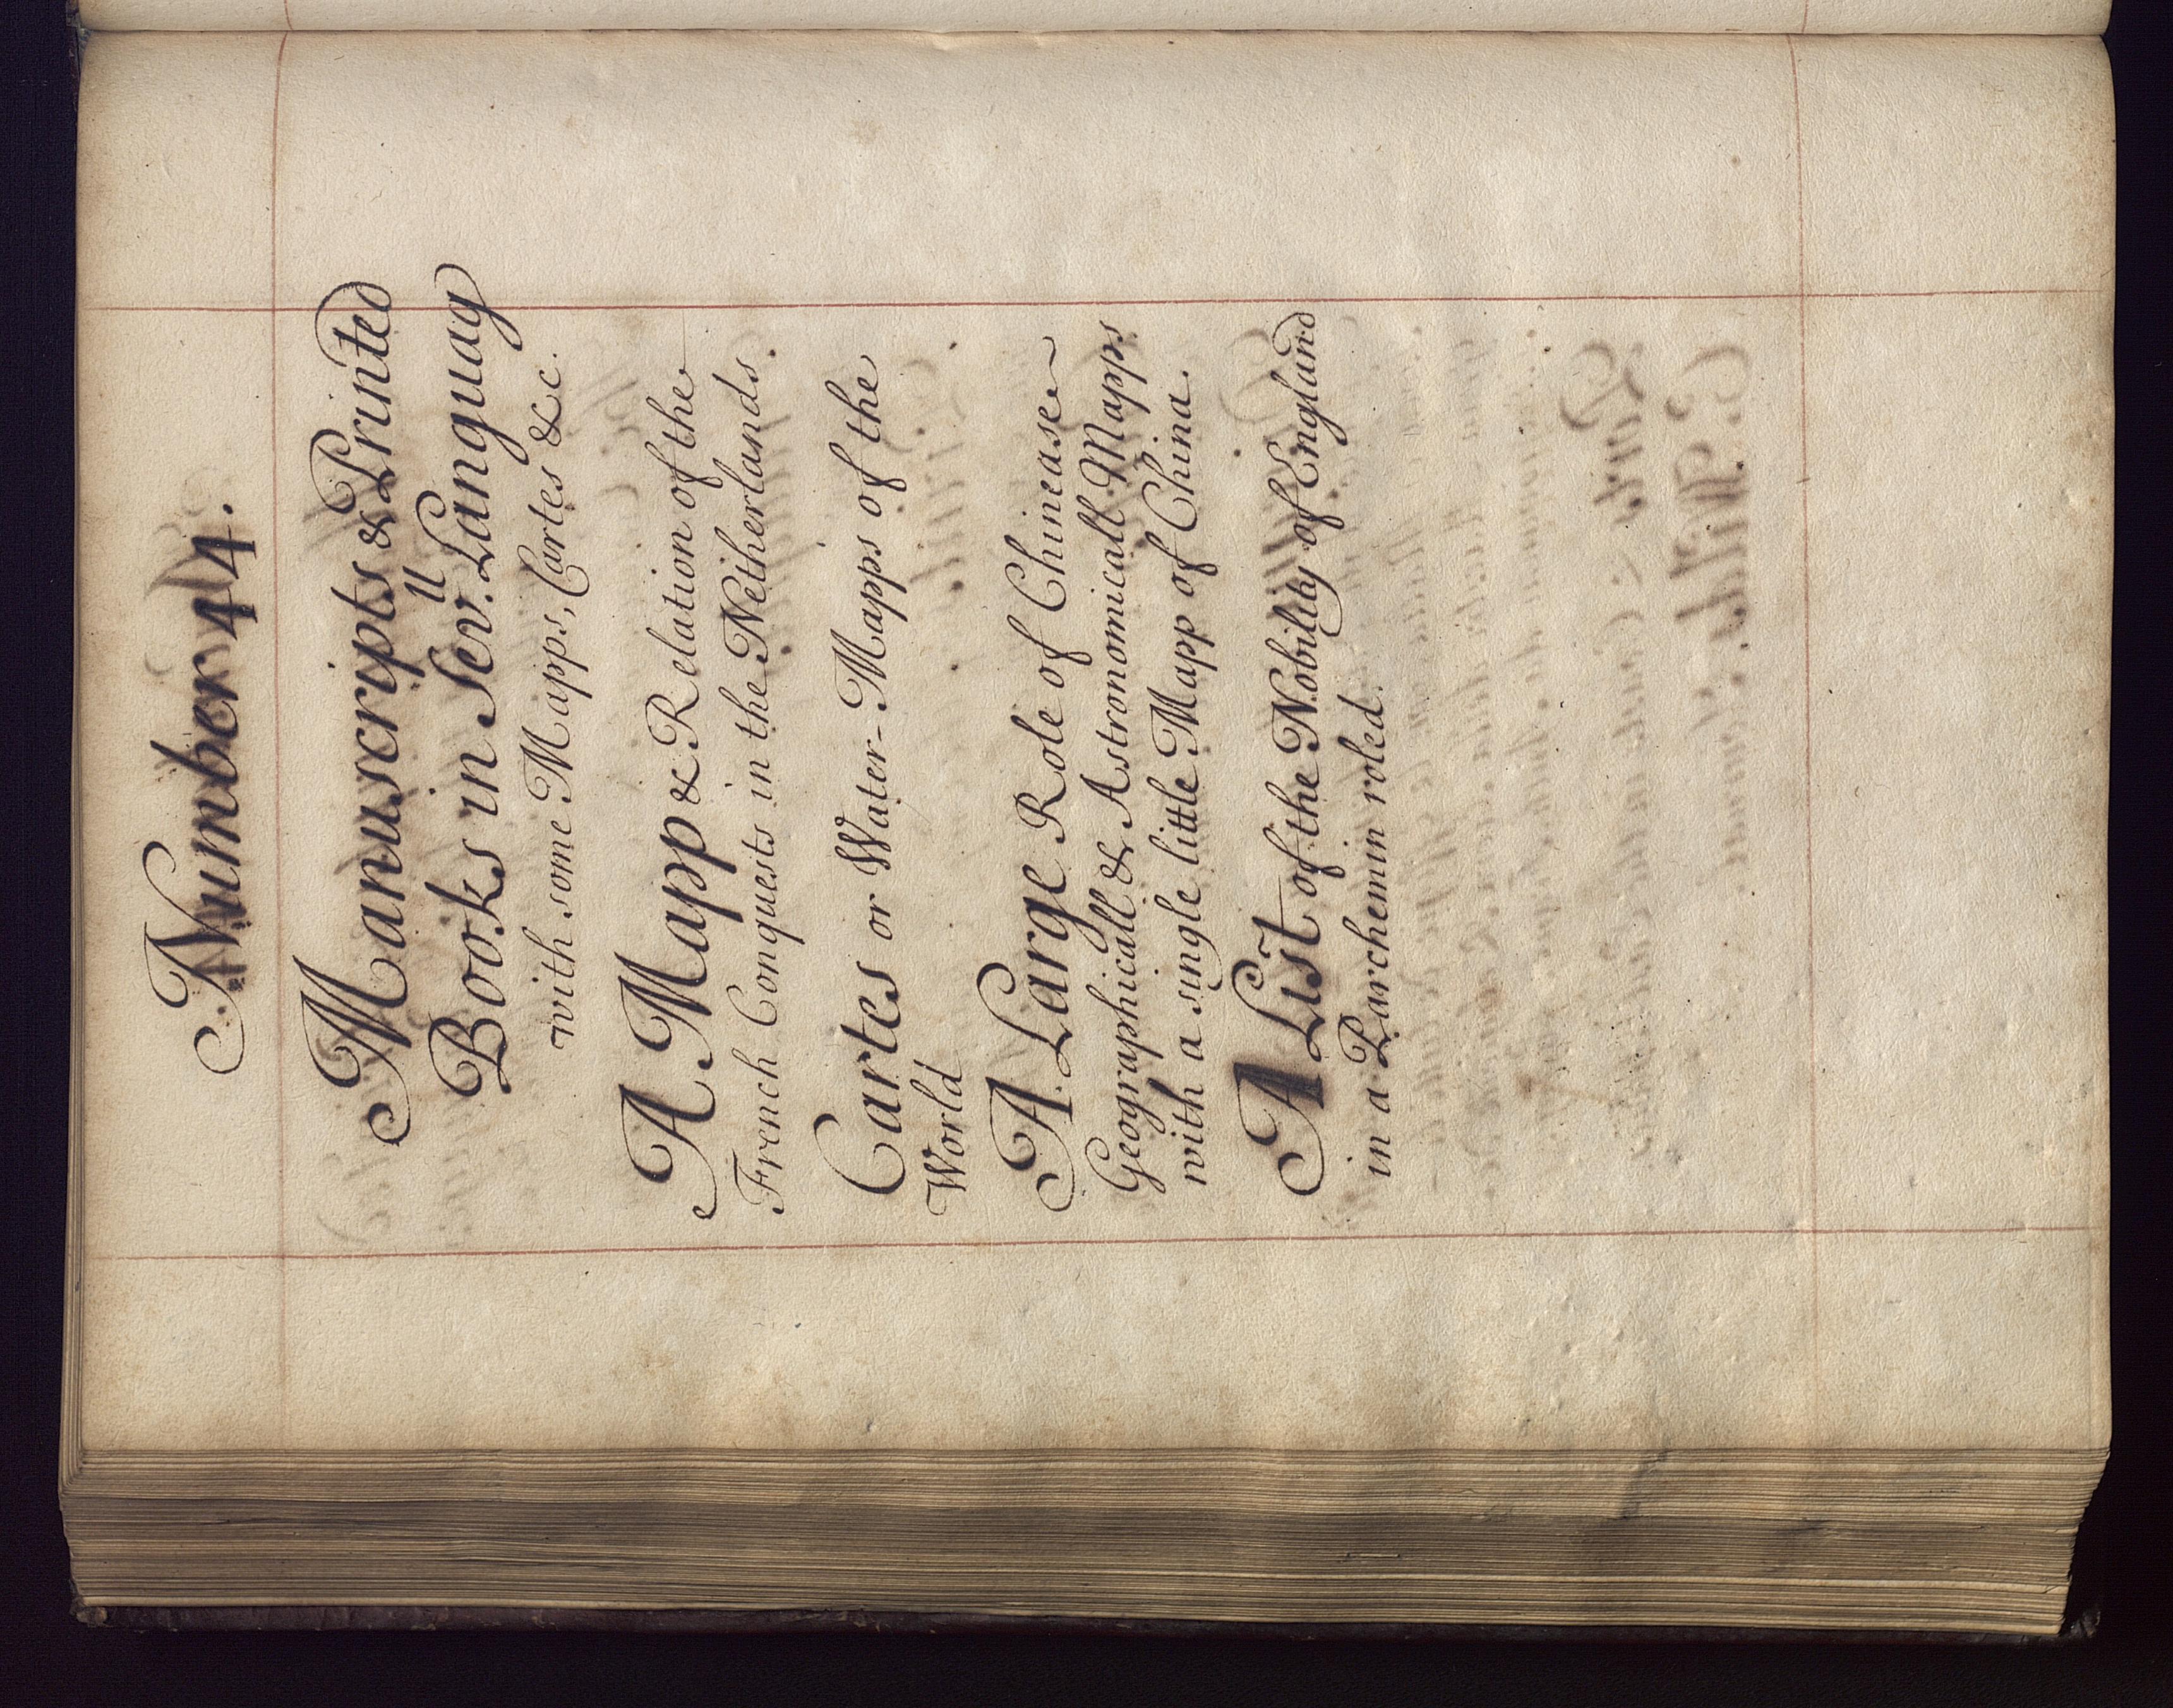 Number 44.
Manuscripts & Printed
Books in Sev.ll Languag
with some Mapps, Cartes &c.
A Mapp & Relation of the
French Conquests in the Netherlands.
Cartes or Water-Mapps of the
World
A Large Role of Chinease
Geographicall & Astronomicall Mapps
with a single little Mapp of China.
A List of the Nobility of England
in a Parchemin roled.